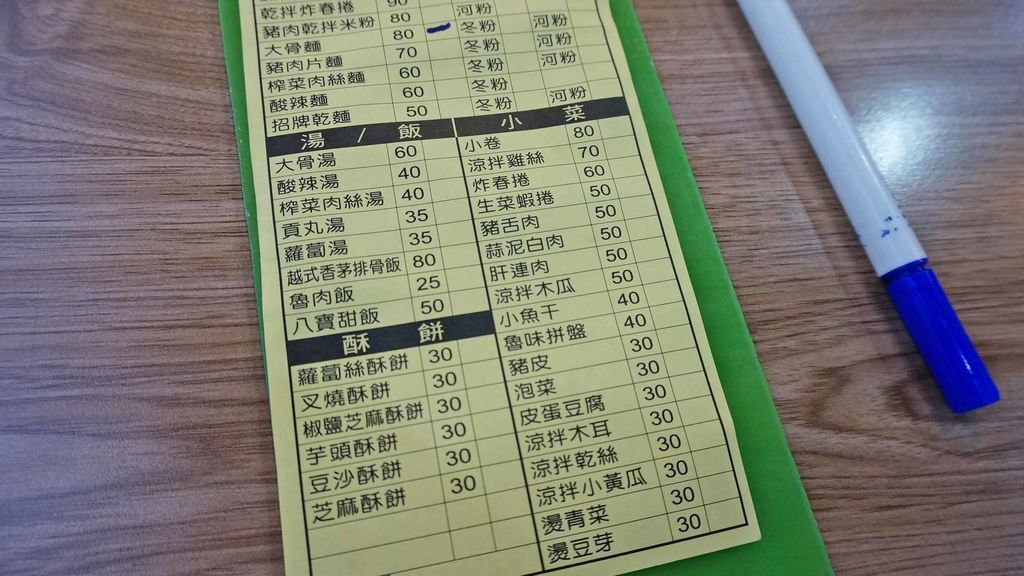 乾拌炸春捲 90
豬肉乾拌米粉 80 河粉
大骨麵 80 冬粉 河粉
豬肉片麵 70 冬粉 河粉
榨菜肉絲麵 60 冬粉 河粉
酸辣麵 60 冬粉
招牌乾麵 50 冬粉 河粉
湯 / 飯
大骨湯 60
酸辣湯 40
榨菜肉絲湯 40
貢丸湯 35
蘿蔔湯 35
越式香茅排骨飯 80
魯肉飯 25
八寶甜飯 50
酥 餅
蘿蔔絲酥餅 30
叉燒酥餅 30
椒鹽芝麻酥餅 30
芋頭酥餅 30
豆沙酥餅 30
芝麻酥餅 30
小 菜
小卷 80
涼拌雞絲 70
炸春捲 60
生菜蝦捲 50
豬舌肉 50
蒜泥白肉 50
肝連肉 50
涼拌木瓜 50
小魚干 40
魯味拼盤 40
豬皮 30
泡菜 30
皮蛋豆腐 30
涼拌木耳 30
涼拌乾絲 30
涼拌小黃瓜 30
燙青菜 30
燙豆芽 30